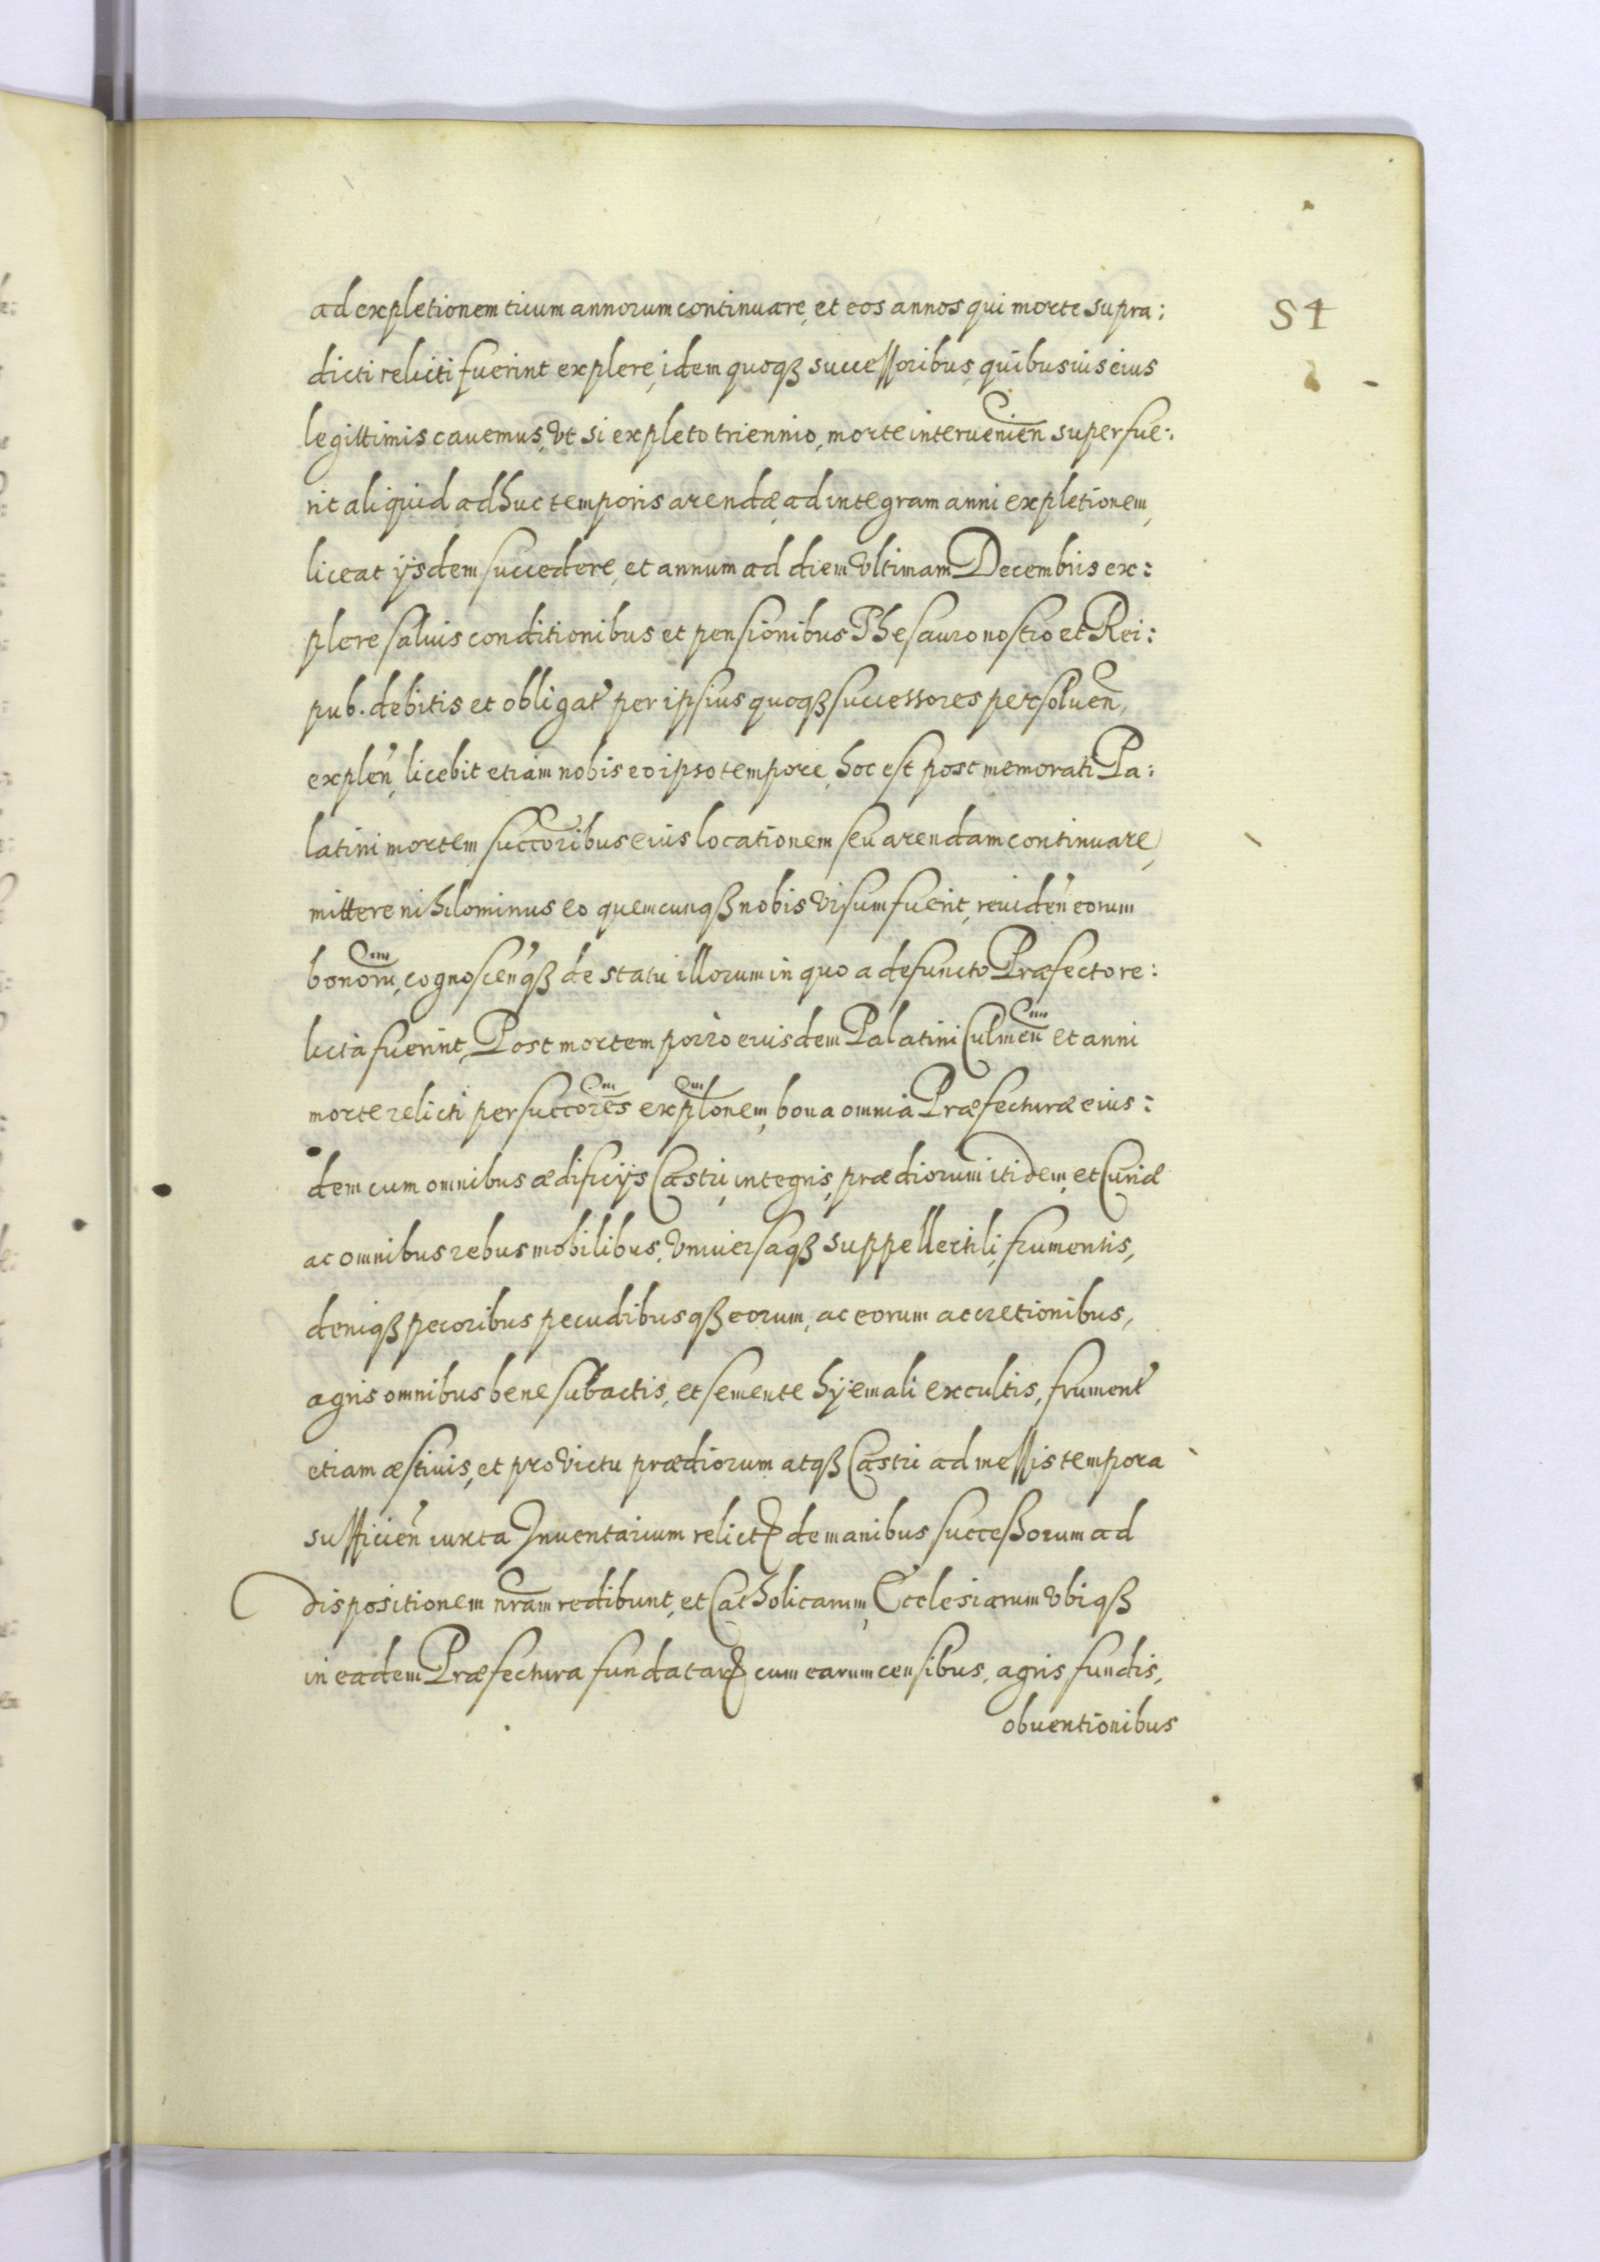 ad expletionem trium annorum continuare, et eos annos qui morte supra:
54
dicti relicti fuerint explere, idem quoqȝ successoribus, quibusuis eius
legittimis cauemus, Vt si expleto triennio, morte interuenien̄ superfue:
rit aliquid adhuc temporis arendæ, ad integram anni expletionem,
liceat ijsdem succedere, et annum ad diem Vltimam Decembris ex:
plere saluis conditionibus et pensionibus Thesauro nostro et Rei:
pub. debitis et obligat̓ per ipsius quoqȝ successores persoluen̄,
explen̓, licebit etiam nobis eo ipso tempore, hoc est post memorati Pa:
latini mortem, succoribus eius locationem seu arendam continuare,
mittere nihilominus eo quemcunqȝ nobis Visum fuerit, reuiden̓ eorum
bonorū, cognoscen̓qȝ de statu illorum in quo a defuncto Præfecto re:
licta fuerint, Post mortem porro eiusdem Palatini Culmen̄ et anni
morte relicti per succores explonem, bona omnia Præfecturæ eius:
dem cum omnibus ædificijs Castri, integris, prædiorum itidem, et Curiæ
ac omnibus rebus mobilibus, Vniuersaqȝ suppellectili, frumentis,
deniqȝ pecoribus pecudibusqȝ eorum, ac eorum accretionibus,
agris omnibus bene subactis, et semente hÿemali excultis, frument̓
etiam æstiuis, et pro Victu prædiorum atqȝ Castri ad messis tempora
sufficien̓ iuxta Inuentarium relictꝭ de manibus successorum ad
dispositionem nr̄am redibunt, et Catholicarum, Ecclesiarum Vbiqȝ
in eadem Præfectura fundatarꝝ cum earum censibus, agris fundis,
obuentionibus